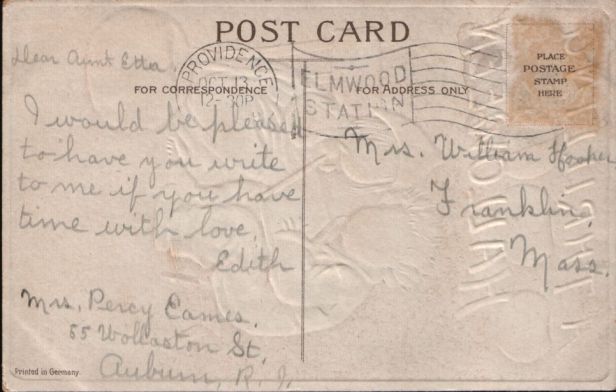 POST CARD
PROVIDENCE
OCT 13
12-30P
ELMWOOD
STATION
PLACE
POSTAGE
STAMP
HERE
FOR CORRESPONDENCE
FOR ADDRESS ONLY
Dear Aunt Etta.
I would be pleased
to have you write
to me if you have
time with love
Edith
Mrs. Percy Eames.
55 Wollaston St,
Auburn, R. I.
Mrs. William Hooker
Franklin,
Mass.
Printed in Germany.